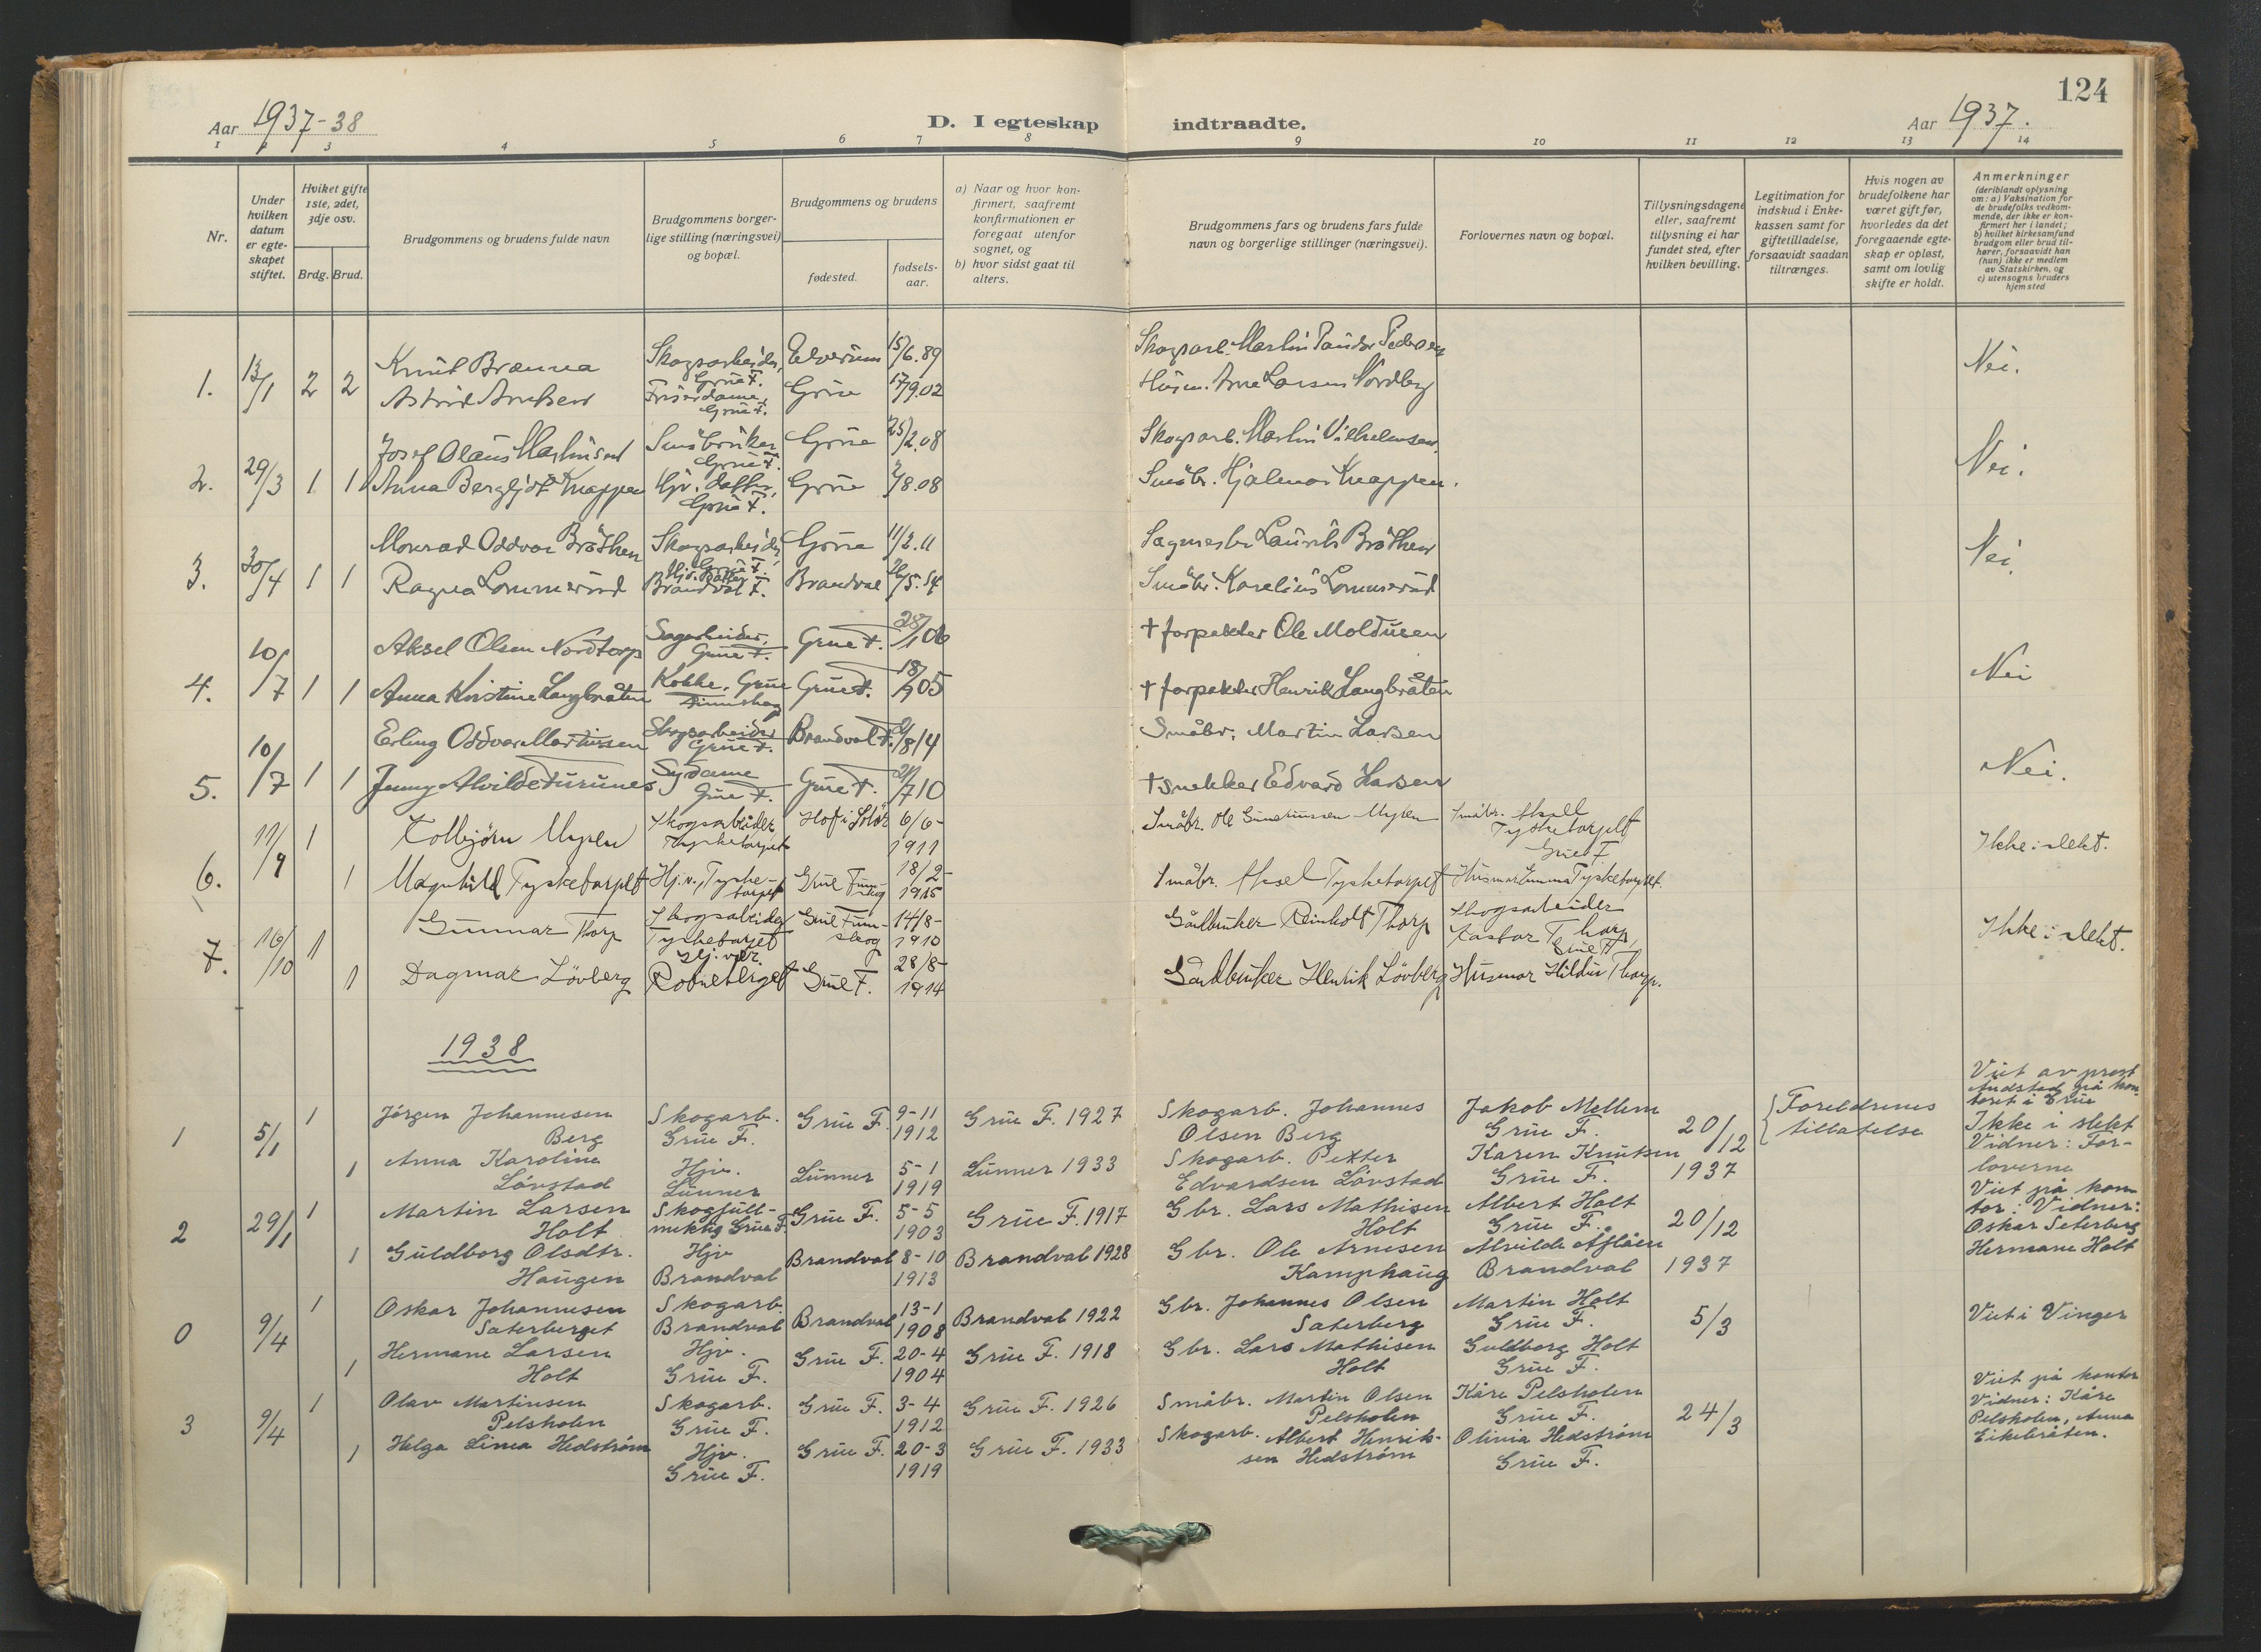 124
Aar 1937-38
D. I egteskap indtraadte.
Aar 1937.
1 2 3 4 5 6 7 8 9 10 11 12 13 14
Nr.
Under hvilken datum er egteskapet stiftet.
Hviket gifte 1ste, 2det, 3dje osv.
Brdg. Brud.
Brudgommens og brudens fulde navn
Brudgommens borgerlige stilling (næringsvei) og bopæl.
Brudgommens og brudens
fødested.
fødselsaar.
a) Naar og hvor konfirmert, saafremt konfirmationen er foregaat utenfor sognet, og
b) hvor sidst gaat til alters.
Brudgommens fars og brudens fars fulde navn og borgerlige stillinger (næringsvei).
Forlovernes navn og bopæl.
Tillysningsdagene eller, saafremt tillysning ei har fundet sted, efter hvilken bevilling.
Legitimation for indskud i Enkekassen samt for giftetilladelse, forsaavidt saadan tiltrænges.
Hvis nogen av brudefolkene har været gift før, hvorledes da det foregaaende egteskap er opløst, samt om lovlig skifte er holdt.
Anmerkninger (deriblandt oplysning om: a) Vaksination for de brudefolks vedkommende, der ikke er konfirmert her i landet; b) hvilket kirkesamfund brudgom eller brud tilhører, forsaavidt han (hun) ikke er medlem av Statskirken, og c) utensogns bruders hjemsted
1. 13/1 2 2 Knut Brænna Skogsarbeider, Grue F. Elverum 15/6.89 Skogsarb. Martin Pedersen Nei.
Astrid Arnesen Friserdame, Grue F. Grue 17/9.02 Husm. Arne Larsen Nordberg
2. 29/3 1 1 Josef Olaus Martinsen Småbruker Grue F. Grue 25/2.08 Skogsarb. Martin Vilhelmsen Nei.
Anna Bergljot Knappen Hjv. datter, Grue F. Grue 2/8.08 Småbr. Hjalmar Knappen.
3. 30/4 1 1 Monrad Oddvar Bråthen Skogsarbeider Grue F. Grue 11/2.11 Sagmester Laurits Bråthen Nei.
Ragna Lommerud Hjv. datter Brandval F. Brandval 26/5.14 Småbr. Karelius Lommerud
4. 10/7 1 1 Aksel Olsen Nordtorp Sagarbeider, Grue F. Grue F. 28/1 06 † forpakter Ole Moldusen Nei
Anna Kristine Langbråten Kokke, Grue Finnskog Grue F. 18/9 05 † forpakter Henrik Langbråten
5. 10/7 1 1 Erling Oddvar Martinsen Skogsarbeider Grue F. Brandval F. /8 14 Småbr. Martin Larsen Nei.
Jenny Alvilde Furunes Sydame Grue F. Grue F. 21/7 10 † snekker Edvard Larsen
6. 11/9 1 Kolbjørn Myren Skogsarbeider Tysketorpet Hof i Solør 6/6-1911 Småbr. Ole Guneriussen Myren Småbr. Aksel Tysketorpet Grue F Ikke i slekt.
1 Magnhild Tysketorpet Hj.v., Tysketorpet Grue Finnskog 18/2-1915 Småbr. Aksel Tysketorpet Husmor Emma Tysketorpet.
7. 16/10 1 Gunnar Thorp Skogsarbeider Tysketorpet Grue Finnskog 14/8-1910 Gårdbruker Reinholt Thorp Skogsarbeider Kastor Thorp, Grue F Ikke i slekt.
1 Dagmar Lövberg Hj.v. Rotneberget Grue F. 28/8-1914 Gårdbruker Henrik Lövberg Husmor Hildur Thorp.
1938
1 5/1 1 Jörgen Johannesen Berg Skogarb. Grue F. Grue F. 9-11 1912 Grue F. 1927 Skogarb. Johannes Olsen Berg Jakob Mellem Grue F. 20/12 1937 Foreldrenes tillatelse Viet av prost Andstad på kontoret i Grue Ikke i slekt Vidner: Forloverne
1 Anna Karoline Lövstad Hjv. Lunner Lunner 5-1 1919 Lunner 1933 Skogarb. Petter Edvardsen Lövstad Karen Knutsen Grue F.
2 29/1 1 Martin Larsen Holt Skogfullmektig Grue F. Grue F. 5-5 1903 Grue F. 1917 Gbr. Lars Mathisen Holt Albert Holt Grue F. 20/12 1937 Viet på kontor: Vidner: Oskar Seterberg Hermane Holt
1 Guldborg Olsdtr. Haugen Hjv Brandval Brandval 8-10 1913 Brandval 1928 Gbr. Ole Arnesen Kamphaug Alvilde Asplåen Brandval
0 9/4 1 Oskar Johannesen Saterberget Skogarb. Brandval Brandval 13-1 1908 Brandval 1922 Gbr. Johannes Olsen Saterberg Martin Holt Grue F. 5/3 Viet i Vinger
1 Hermane Larsen Holt Hjv. Grue F. Grue F. 20-4 1904 Grue F. 1918 Gbr. Lars Mathisen Holt Guldborg Holt Grue F.
3 9/4 1 Olav Martinsen Pelsholen Skogarb. Grue F. Grue F. 3-4 1912 Grue F. 1926 Småbr. Martin Olsen Pelsholen Kåre Pelsholen Grue F. 24/3 Viet på kontor Vidner: Kåre Pelsholen, Anna Eikebråten.
1 Helga Linea Hedström Hjv. Grue F. Grue F. 20-3 1919 Grue F. 1933 Skogarb. Albert Henriksen Hedström Olivia Hedström Grue F.